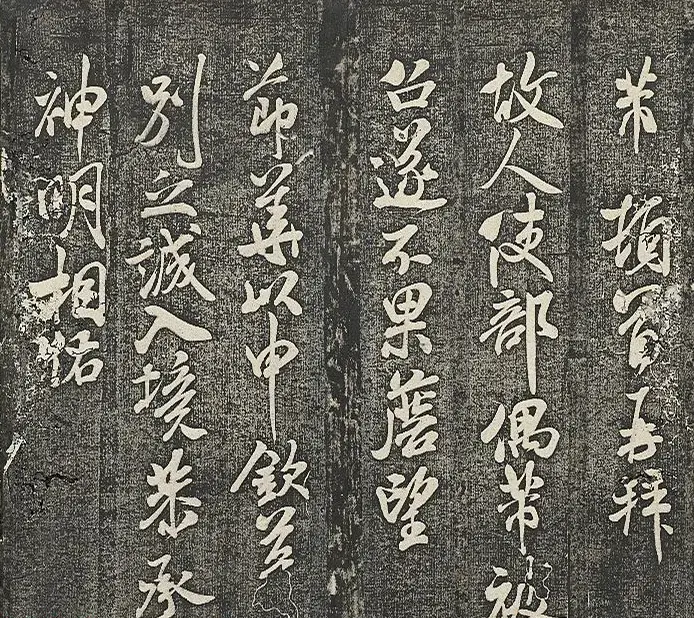 芾頓首再拜
故人使部偶芾被
召遂不果望
節華以申欽
別之誠入境恭承
神明相祐